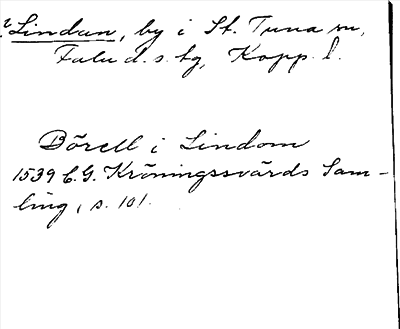 Lindan, by i St. Tuna sn,
Falu d. s. tg, Kopp. l.
Börell i Lindom
1539 C.G. Kröningssvärds Sam-
ling, s. 101.